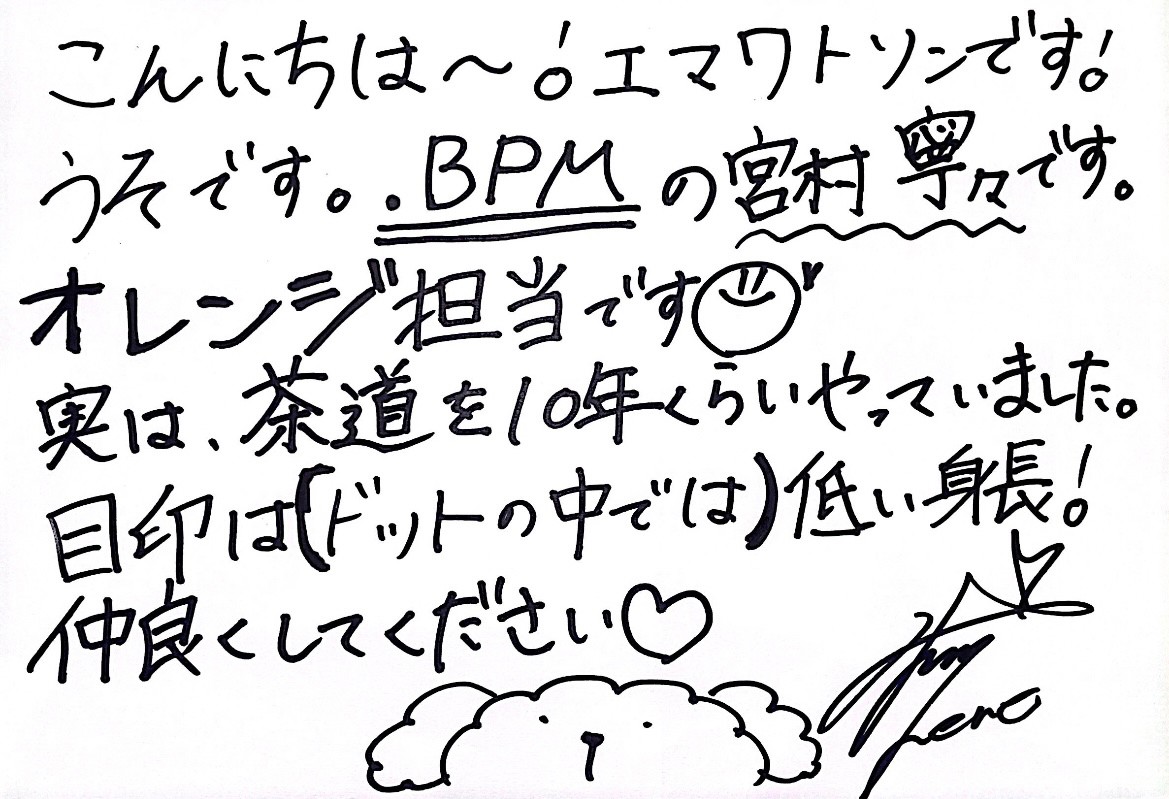 こんにちは〜!エマワトソンです!
うそです。.BPMの宮村 寧々です。
オレンジ担当です
実は、茶道を10年くらいやっていました。
目印は(ドットの中では)低い身長!
仲良くしてください♡